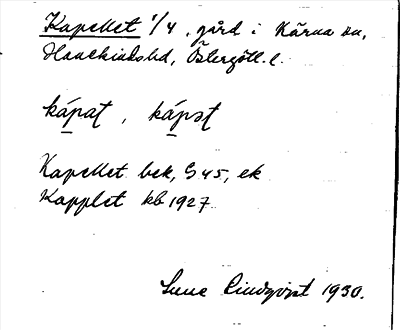 Kapellet 1/4, gård i Kärna sn,
Hanekinds hd, Östergötl. l.
kápat, kápət
Kapellet bek, G 45, ek
Kapplet kb 1927
Sune Lindqvist 1930.